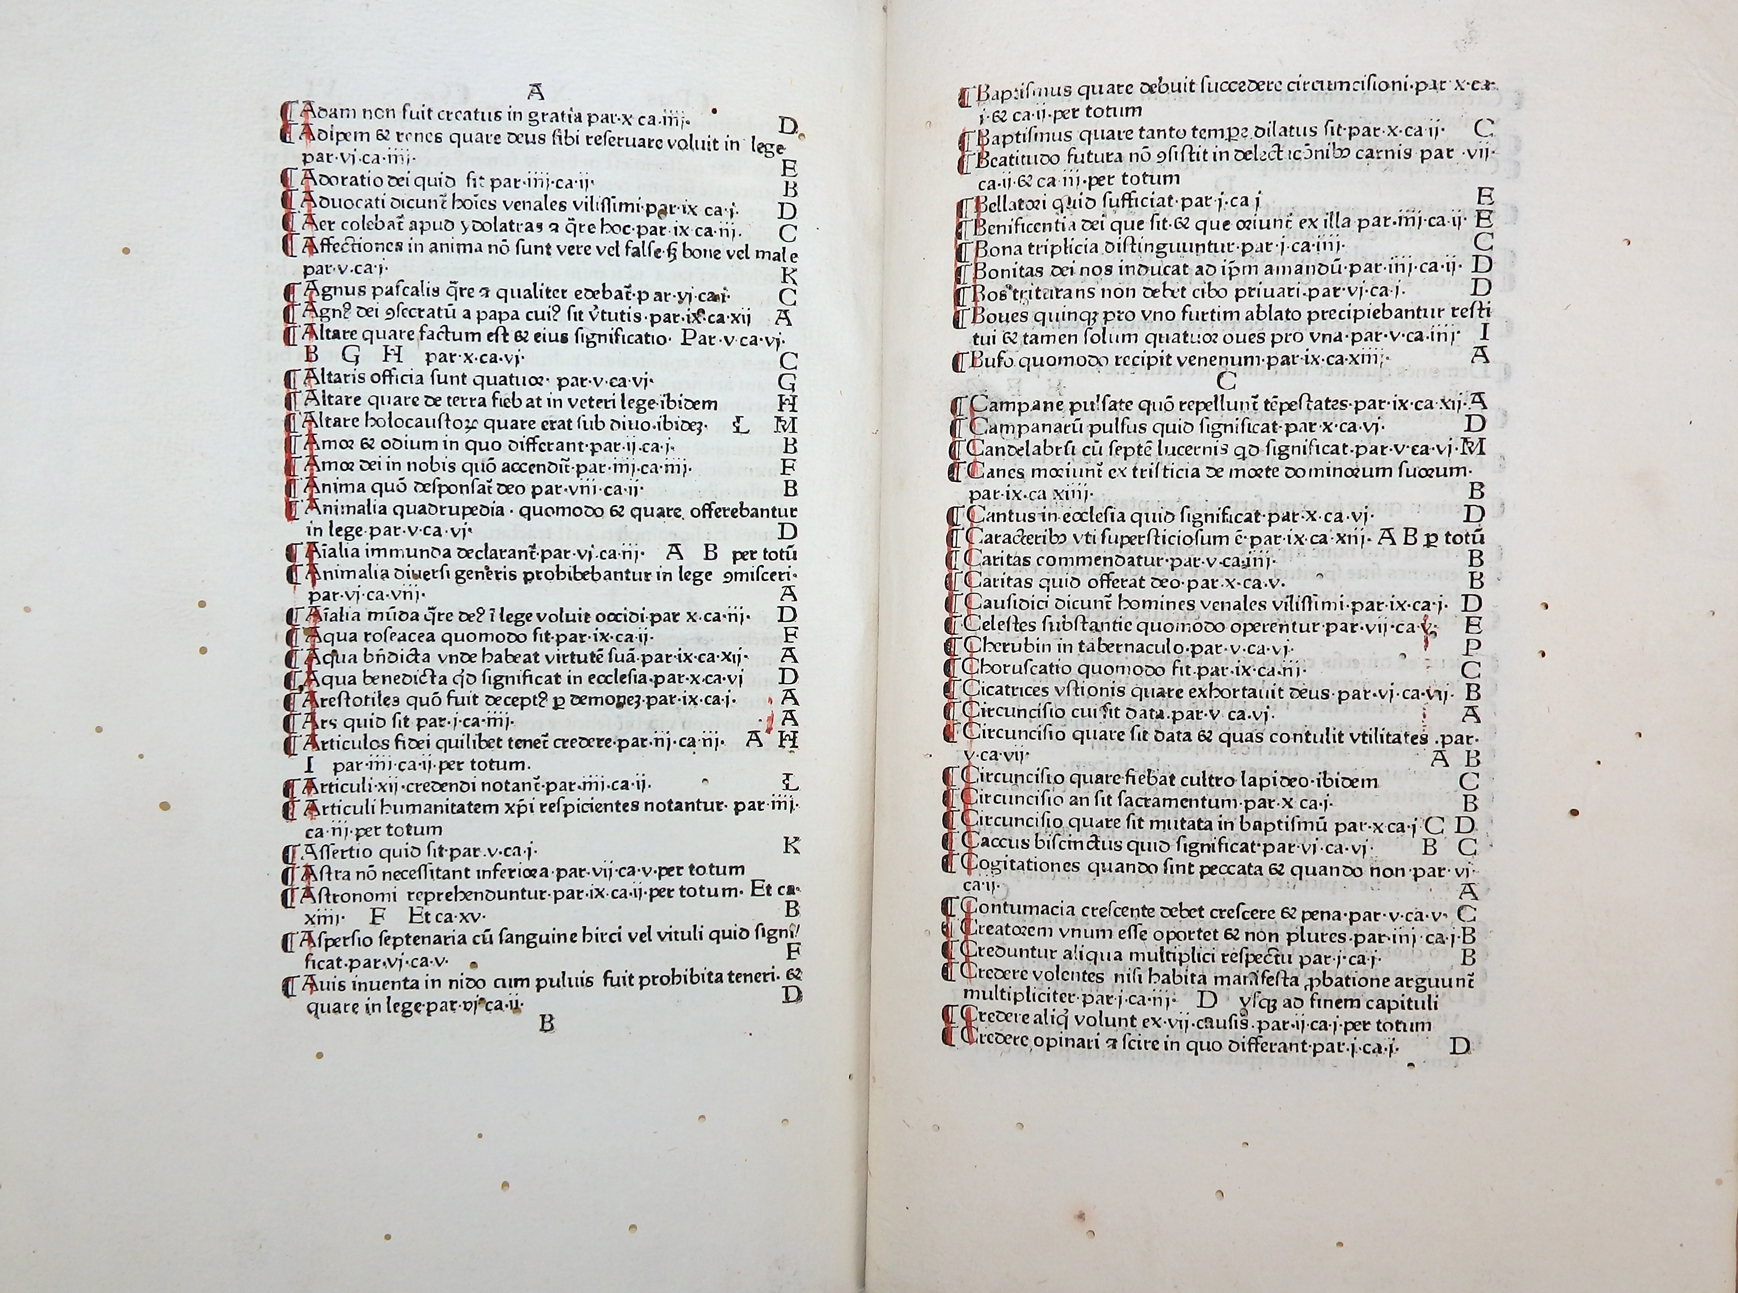 A
¶Adam non fuit creatus in gratia par·x ca·iiij· D
¶Adipem & renes quare deus sibi reseruare voluit in lege
par·vj·ca·iiij· E
¶Adoratio dei quid sit par·iiij·ca·ij· B
¶Aduocati dicunt̄ hoīes venales vilissimi·par·ix ca·j· D
¶Aer colebat̄ apud ydolatras ꝛ q̄re hoc·par·ix·ca·iij· C
¶Affectiones in anima nō sunt vere vel false·ꝫ bone vel male
par·v·ca·j· K
¶Agnus pascalis q̄re ꝛ qualiter edebat̄·par·vj·ca·i· C
¶Agnꝰ dei ꝯsecratū a papa cuiꝰ sit v̓tutis·par·ix·ca·xij A
¶Altare quare factum est & eius significatio· Par·v·ca·vj·
B G H par·x·ca·vj· C
¶Altaris officia sunt quatuor· par·v·ca·vj· G
¶Altare quare de terra fiebat in veteri lege·ibidem H
¶Altare holocaustoꝝ quare erat sub diuo·ibideꝫ· L M
¶Amor & odium in quo differant·par·ij·ca·j· B
¶Amor dei in nobis quō accendit̄·par·iiij·ca·iiij· F
¶Anima quō desponsat̄ deo par·viij·ca·ij· B
¶Animalia quadrupedia · quomodo & quare offerebantur
in lege·par·v·ca·vj· D
¶Aīalia immunda declarant̄·par·vj·ca·iij· A B per totū
¶Animalia diuersi generis prohibebantur in lege ꝯmisceri·
par·vj·ca·viij· A
¶Aīalia mūda q̄re deꝰ ī lege voluit occidi·par x·ca·iij· D
¶Aqua roseacea quomodo sit·par·ix·ca·ij· F
¶Aqua bn̄dicta vnde habeat virtutē suā·par·ix·ca·xij· A
¶Aqua benedicta qd̄ significat in ecclesia·par·x·ca·vj D
¶Arestotiles quō fuit deceptꝰ ꝑ demoneꝫ·par·ix·ca·j· A
¶Ars quid sit par·j·ca·iiij· A
¶Articulos fidei quilibet tenet̄ credere·par·iij·ca·iij· A H
I par·iiij·ca·ij·per totum·
¶Articuli·xij·credendi notant̄·par·iiij·ca·ij· L
¶Articuli humanitatem xp̄i respicientes notantur· par·iiij·
ca·iij·per totum
¶Assertio quid sit·par·v·ca·j· K
¶Astra nō necessitant inferiora·par·vij·ca·v·per totum
¶Astronomi reprehenduntur·par·ix·ca·ij·per totum· Et ca·
xiiij· F Et ca·xv· B
¶Aspersio septenaria cū sanguine hirci vel vituli quid signi/
ficat·par·vj·ca·v· F
¶Auis inuenta in nido cum puluis fuit prohibita teneri· &
quare in lege·par·vj·ca·ij· D
B
¶Baptismus quare debuit succedere circumcisioni·par·x·ca·
j·& ca·ij·per totum
¶Baptismus quare tanto tempꝛe dilatus sit·par·x·ca·ij· C
¶Beatitudo futura nō ꝯsistit in delectationibꝫ carnis par·vij·
ca·ij·& ca·iij·per totum
¶Bellatori quid sufficiat·par·j·ca j E
¶Benificentia dei que sit·& que oriunt̄ ex illa·par·iiij·ca·ij· E
¶Bona triplicia distinguuntur·par·j·ca·iiij· C
¶Bonitas dei nos inducat ad ip̄m amandū·par·iiij·ca·ij· D
¶Bos triturans non debet cibo priuari·par·vj·ca·j· D
¶Boues quinqꝫ pro vno furtim ablato precipiebantur resti
tui & tamen solum quatuor oues pro vna·par·v·ca·iiij· I
¶Bufo quomodo recipit venenum·par·ix·ca·xiiij· A
C
¶Campane pulsate quō repellunt̄ tēpestates·par·ix·ca·xij·A
¶Campanarū pulsus quid significat·par·x·ca·vj· D
¶Candelabrsi cū septē lucernis qd significat·par·v·ca·vj·M
¶Canes moriunt̄ ex tristicia de morte dominorum suorum·
par·ix·ca xiiij· B
¶Cantus in ecclesia quid significat·par·x·ca·vj· D
¶Caracteribꝫ vti supersticiosum ē·par·ix·ca·xiij· A B ꝑ totū
¶Caritas commendatur·par·v·ca·iiij· B
¶Caritas quid offerat deo·par·x·ca·v· B
¶Causidici dicunt̄ homines venales vilissimi·par·ix·ca·j· D
¶Celestes substantie quomodo operentur·par·vij·ca·v· E
¶Cherubin in tabernaculo·par·v·ca·vj· P
¶Choruscatio quomodo fit·par·ix·ca·iij· C
¶Cicatrices vstionis quare exhortauit deus·par·vj·ca·vij· B
¶Circuncisio cui sit data·par·v·ca·vj· A
¶Circuncisio quare sit data & quas contulit vtilitates·par·
v·ca·vij· A B
¶Circuncisio quare fiebat cultro lapideo·ibidem C
¶Circuncisio an sit sacramentum·par·x ca·j· B
¶Circuncisio quare sit mutata in baptismū par·x·ca·j C D
¶Caccus biscinctus quid significat·par·vj·ca·vj· B C
¶Cogitationes quando sint peccata & quando non·par·vj·
ca·ij· A
¶Contumacia crescente debet crescere & pena·par·v·ca·v· C
¶Creatorem vnum esse oportet & non plures·par·iiij·ca·j·B
¶Creduntur aliqua multiplici respectu par·j·ca·j· B
¶Credere volentes nisi habita manifesta ꝓbatione arguunt̄
multipliciter·par·j·ca·iij· D vsqꝫ ad finem capituli
¶Credere aliq̄ volunt ex·vij·causis·par·ij·ca·j·per totum
¶Credere opinari ꝛ scire in quo differant·par·j·ca·j· D